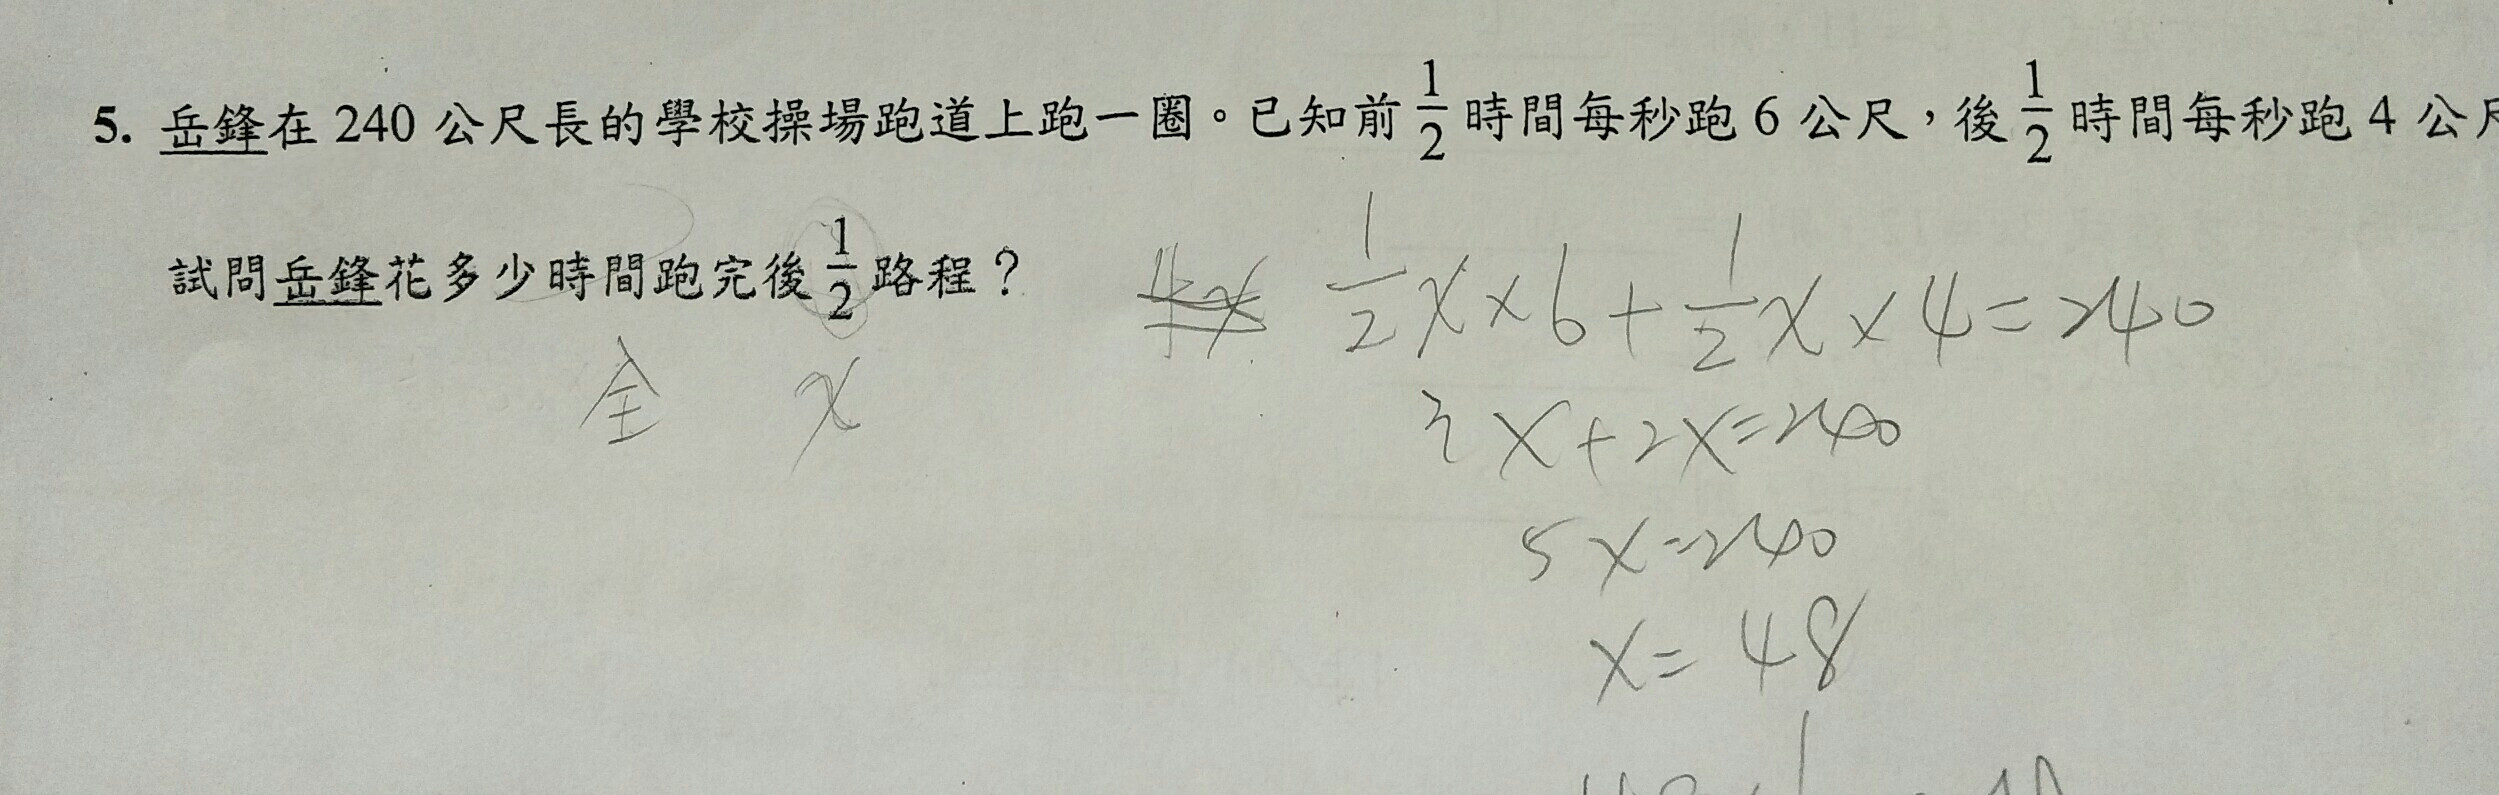 5. 岳鋒在 240 公尺長的學校操場跑道上跑一圈。已知前 1/2 時間每秒跑 6 公尺，後 1/2 時間每秒跑 4 公尺
試問岳鋒花多少時間跑完後 1/2 路程？
1/2 x × 6 + 1/2 x × 4 = 240
全 x
3x + 2x = 240
5x = 240
x = 48